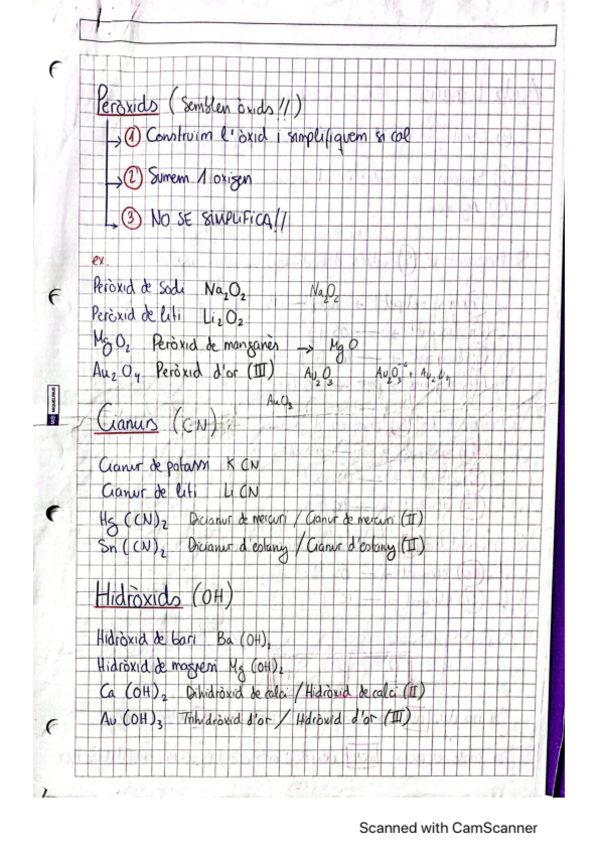 Peròxids (Semblen òxids!!)
① Construim l'òxid i simplifiquem si cal
② Sumem 1 oxigen
③ NO SE SIMPLIFICA!!
ex.
Peròxid de Sodi Na₂O₂ Na₂O₂
Peròxid de liti Li₂O₂
MgO₂ Peròxid de manganès → MgO
Au₂O₄ Peròxid d'or (III) Au₂O₃
AuO₃
Cianurs (CN)
Cianur de potassi KCN
Cianur de liti LiCN
Hg(CN)₂ Dicianur de mercuri / Cianur de mercuri (II)
Sn(CN)₂ Dicianur d'estany / Cianur d'estany (II)
Hidròxids (OH)
Hidròxid de bari Ba(OH)₂
Hidròxid de magnesi Mg(OH)₂
Ca(OH)₂ Dihidròxid de calci / Hidròxid de calci (II)
Au(OH)₃ Trihidròxid d'or / Hidròxid d'or (III)
Scanned with CamScanner